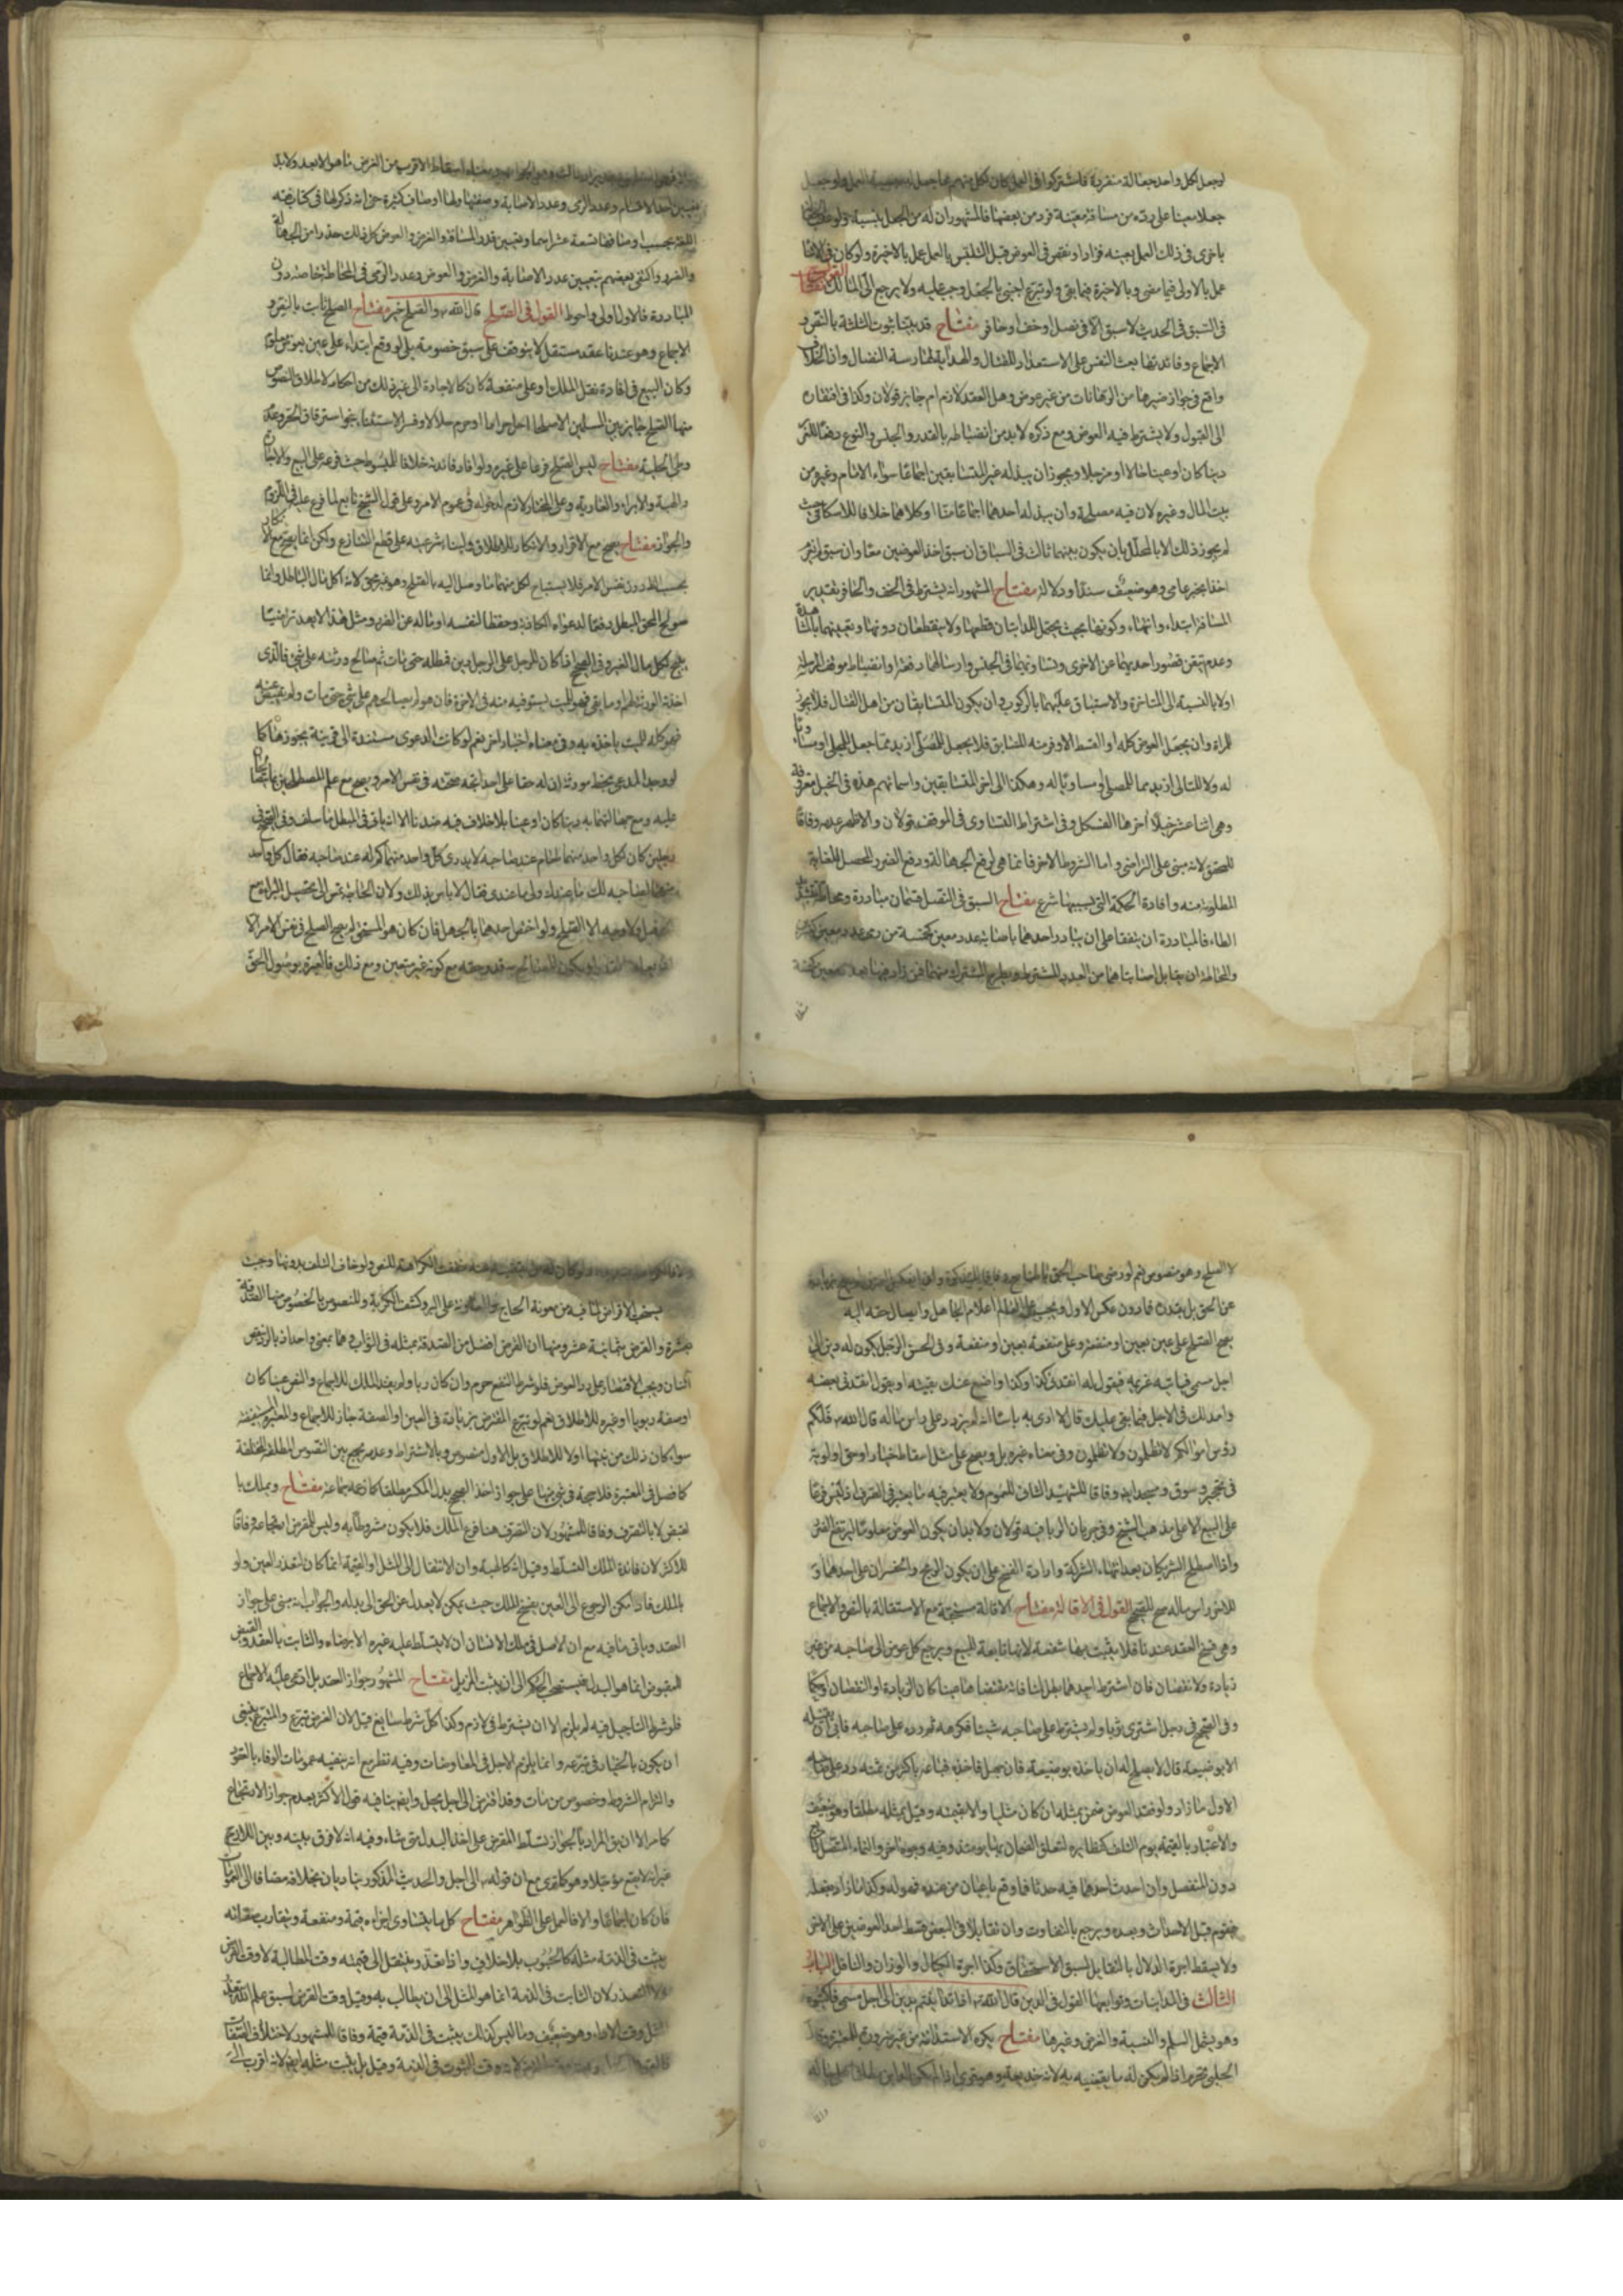 لوجعل لكل واحد جعالة منفردة فاشتركوا فى العمل كان لكل منهم مما جعل له بنسبة العمل ولو جعل
جعلا معينا على رده من مسافة معينة فرد من بعضها فالمشهور ان له من الجعل بنسبة ولو عقب
باخرى فى ذلك العمل بعينه فزاد او نقص فى العوض قبل التلبس بالعمل عمل بالاخيرة ولو كان فى الاثنا
عمل بالاولى فيما مضى وبالاخيرة فيما بقى ولو تبرع اجنبى بالجعل وجب عليه ولا يرجع الى المالك
فى السبق فى الحديث لا سبق الا فى نصل او خف او حافر مفتاح قد بينا ثبوت الثلثة بالنص و
الاجماع وفائدتها بعث النفس على الاستعداد للقتال والهداية لممارسة النضال وان الخلاف
واقع فى جواز غيرها من الرهانات من غير عوض وهل العقد لازم ام جايز قولان وكذا فى افتقاره
الى القبول ولا يشترط فيه العوض ومع ذكره لا بد من انضباطه بالقدر والجنس والنوع دفعا للغرر
دينا كان او عينا حالا او مؤجلا ويجوز ان يبذله غير المتسابقين اجماعا سواء الامام وغيره من
بيت المال وغيره لان فيه مصلحة وان يبذله احدهما اجماعا منا او كلاهما خلافا للاسكافى حيث
لم يجوز ذلك الا بالمحلل بان يكون بينهما ثالث فى السباق ان سبق اخذ العوضين معا وان سبق لم يغرم
اخذا بخبر عامى وهو ضعيف سندا ودلالة مفتاح المشهور انه يشترط فى الخف والحافر تقدير
المسافة ابتداء وانتهاء وكونها بحيث يحتمل الدابتان قطعها ولا ينقطعان دونها وتعيينهما بالمشاهدة
وعدم تيقن قصور احديهما عن الاخرى وتساويهما فى الجنس وارسالهما دفعة وانضباط موقف الرسله
اولا بالنسبة الى المتاخرة والاستباق عليهما بالركوب وان يكون المتسابقان من اهل القتال فلا يجوز
للمراة وان يجعل العوض كله او القسط الاوفر منه للسابق فلا يجعل للمصلى ازيد مما جعل للمجلى او مساويا
له ولا للتالى ازيد مما للمصلى او مساويا له وهكذا الى اخر المتسابقين واسمائهم هذه فى الخيل معروفة
وهى اثنا عشر خيلا آخرها الفسكل وفى اشتراط التساوى فى الموقف قولان والاظهر عدمه وفاقا
للمحقق لانه مبنى على التراضى واما الشروط الاخر فانما هى لرفع الجهالة ودفع الغرر المحصل للغاية
المطلوبة منه وافادة الحكمة التى بسببها شرع مفتاح السبق فى النصل قسمان مبادرة ومحاطة بتشديد
الطاء فالمبادرة ان يتفقا على ان يبادر احدهما باصابة عدد معين كخمسة من رمى عدد معين كعشر
والمحاطة ان يقابل اصابتاهما من العدد المشترط ويطرح المشترك منهما فمن زاد فيها بعدد معين كخمسة
تعيين احد الاقسام وعدد الرمى وعدد الاصابة وصفتها ولها اوصاف كثيرة حتى انه ذكر لها فى كتاب فقه
اللغة بحسب اوصافها تسعة عشر اسما وتعيين قدر المسافة والغرض والعوض كل ذلك حذرا من الجهالة
والغرر واكتفى بعضهم بتعيين عدد الاصابة والغرض والعوض وعدد الرمى فى المحاطة خاصة دون
المبادرة فالاول اولى واحوط القول فى الصلح قال الله تع والصلح خير مفتاح الصلح ثابت بالنص و
الاجماع وهو عندنا عقد مستقل لا يتوقف على سبق خصومة بل لو وقع ابتداء على عين بعوض معلوم
وكان البيع فى افادة نقل الملك او على منفعة كان كالاجارة الى غير ذلك من احكامه لاطلاق النصوص
منها الصلح جايز بين المسلمين الا صلحا احل حراما او حرم حلالا وفسر الاستثناء بنحو استرقاق الحر وعدم
وطى الحليلة مفتاح ليس الصلح فرعا على غيره ولو افاد فائدته خلافا للمبسوط حيث فرعه على البيع والاجارة
والهبة والابراء والعارية وعلى المختار لازم لدخوله فى عموم الامر وعلى قول الشيخ تابع لما فرع عليه فى اللزوم
والجواز مفتاح يصح مع الاقرار والانكار للاطلاق ولبناء شرعيته على قطع التنازع ولكن انما يصح مع الانكار
بحسب الظ دون نفس الامر فلا يستباح لكل منهما ما وصل اليه بالصلح وهو غير محق لانه اكل مال بالباطل وانما
صولح المحق المبطل دفعا لدعواه الكاذبة وحفظا لنفسه او ماله عن الضرر ومثل هذا لا يعد تراضيا
يبيح اكل مال الغير وفى الصحيح اذا كان للرجل على الرجل دين فمطله حتى مات ثم صالح ورثته على شىء فالذى
اخذ الورثة لهم وما بقى فهو للميت يستوفيه منه فى الاخرة فان هو لم يصالحهم على شىء حتى مات ولم يقض عنه
فهو كله للميت ياخذه به وفى معناه اخبار اخر نعم لو كانت الدعوى مستندة الى قرينة يجوز هنا كما
لو وجد المدعى بخط مورثه ان له حقا على احد اتجه صحته فى نفس الامر ويصح مع علم المصطلحين بما تنازعا
عليه ومع جهالتهما به دينا كان او عينا بلا خلاف فيه عندنا الا ان الباقى فى المبطل ما سلف وفى الصحيح فى
رجلين كان لكل واحد منهما طعام عند صاحبه لا يدرى كل واحد منهما كم له عند صاحبه فقال كل واحد
منهما لصاحبه لك ما عندك ولى ما عندى فقال لا باس بذلك ولان الحاجة تمس الى تحصيل البراءة مع
الجهل ولا وجه الا الصلح ولو اختص احدهما بالجهل فان كان هو المستحق لم يصح الصلح فى نفس الامر الا
قدر حقه مع كونه غير متعين ومع ذلك فالعبرة بوصول الحق
لا الصلح وهو منصوص نعم لو رضى صاحب الحق
عن الحق بل بدون فادون عكس الاول ويجب على العالم اعلام الجاهل وايصال حقه اليه
يصح الصلح على عين بعين او منفعة وعلى منفعة بعين او منفعة وفى الحسن الرجل يكون له دين الى
اجل مسمى فياتيه غريمه فيقول له انقدنى كذا وكذا واضع عنك بقيته او يقول انقدنى بعضه
وامد لك فى الاجل فيما بقى عليك قال لا ارى به باسا انه لم يزدد على راس ماله قال الله تع فلكم
رؤس اموالكم لا تظلمون ولا تظلمون وفى معناه غيره بل ويصح على مثل اسقاط خيار او حق اولوية
فى تحجير وسوق ومسجد ايضا وفاقا للشهيد الثانى للعموم ولا يعتبر فيه ما يعتبر فى الصرف اذ ليس فرعا
على البيع الا على مذهب الشيخ وفى جريان الربا فيه قولان ولا بد ان يكون العوض معلوما ليرتفع الغرر
واذا اصطلح الشريكان بعد انتهاء الشركة وارادة الفسخ على ان يكون الربح والخسران على احدهما و
للاخر راس ماله صح للصحيح القول فى الاقالة مفتاح الاقالة مستحبة مع الاستقالة بالنص والاجماع
وهى فسخ العقد عندنا فلا يثبت بها شفعة لانها تابعة للبيع ويرجع كل عوض الى صاحبه من غير
زيادة ولا نقصان فان اشترط احدهما بطل لمنافاته مقتضاها عينا كان الزيادة او النقصان او حكما
وفى الصحيح فى رجل اشترى ثوبا ولم يشترط على صاحبه شيئا فكرهه ثم رده على صاحبه فابى ان يقبله
الا بوضيعة قال لا يصلح له ان ياخذه بوضيعة فان جهل فاخذه فباعه باكثر من ثمنه رد على صاحبه
الاول ما زاد ولو فقد العوض ضمن بمثله ان كان مثليا والا بقيمته وقيل بمثله مطلقا وهو ضعيف
والاعتبار بالقيمة يوم التلف كنظايره لتعلق الضمان بها يومئذ وفيه وجوه اخر والنماء المتصل تابع
دون المنفصل وان احدث احدهما فيه حدثا فما وقع باعيان من عنده فهو له وكذا ما زاد بفعله
فيقوم قبل الاحداث وبعده ويرجع بالتفاوت وان تقابلا فى البعض فقسط احد العوضين على الاخر
ولا يسقط اجرة الدلال بالتقايل لسبق الاستحقاق وكذا اجرة الكيال والوزان والناقل الباب
الثالث فى المداينات وتوابعها القول فى الدين قال الله تع اذا تداينتم بدين الى اجل مسمى فاكتبوه
وهو يشمل السلم والنسية والقرض وغيرها مفتاح يكره الاستدانة من غير ضرورة للمعتبرة و
الحلبى تحريم اذا لم يكن له ما يقضيه به لانه خديعة
خفت الكراهة للنص ولو خاف التلف بدونها وجبت
يستحب الاقراض لما فيه من معونة المحتاج والمعاونة على البر وكشف الكربة وللنصوص بالخصوص منها الصدقة
بعشرة والقرض بثمانية عشر ومنها ان القرض افضل من الصدقة بمثله فى الثواب وهما بمعنى واحد اذ بالقرض
اثنان ويجب الاقتصار على رد العوض فلو شرط النفع حرم وان كان ربا ولم يفد الملك للاجماع والنص عينا كان
او صفة ربويا او غيره للاطلاق نعم لو تبرع المقترض بزيادة فى العين او الصفة جاز للاجماع والمعتبرة المستفيضة
سواء كان ذلك من نيتهما او لا للاطلاق بل الاول منصوص وبالاشتراط وعدمه يجمع بين النصوص المطلقة المختلفة
كما فصل فى المعتبرة فلا حجة فى شىء منها على جواز اخذ الصحيح بدل المكسر مطلقا كما زعمه جماعة مفتاح ويملك با
لقبض لا بالتصرف وفاقا للمشهور لان التصرف هنا فرع الملك فلا يكون مشروطا به وليس للمقرض ارتجاعه وفاقا
للاكثر لان فائدة الملك التسلط وقيل له كالهبة وان الانتقال الى المثل او القيمة انما كان لتعذر العين ولو
بالملك فاذا امكن الرجوع الى العين بفسخ الملك حيث يمكن لا يعدل عن الحق الى بدله والجواب انه مبنى على جواز
العقد وياتى ما فيه مع ان الاصل فى ملك الانسان ان لا يتسلط عليه غيره الا برضاه والثابت بالعقد والقبض
للمقبوض انما هو البدل فيستصحب الحكم الى ان يثبت المزيل مفتاح المشهور جواز العقد بل ادعى عليه الاجماع
فلو شرط التاجيل فيه لم يلزم الا ان يشترط فى لازم وكذا كل شرط سايغ قيل لان القرض تبرع والمتبرع ينبغى
ان يكون بالخيار فى تبرعه وانما يلزم الاجل فى المعاوضات وفيه نظر مع انه ينفيه عمومات الوفاء بالعقود
والتزام الشروط وخصوص من مات وقد اقرض الى اجل يحل وايضا ينافيه قول الاكثر بعدم جواز الارتجاع
كما مر الا ان يق المراد بالجواز تسلط المقرض على اخذ البدل متى شاء وفيه انه لا فرق بينه وبين اللازم ح
غير انه لا يقع مؤجلا وهو كما ترى مع ان قوله الى اجل والحديث المذكور يناديان بخلافه مضافا الى العمومات
فان كان اجماعا والا فالعمل على الظواهر مفتاح كل ما يتساوى اجزاؤه قيمة ومنفعة ويتقارب صفاته
يثبت فى الذمة مثله كالحبوب بلا خلاف واذا تعذر ينتقل الى قيمته وقت المطالبة لا وقت القرض
ولا التعذر لان الثابت فى الذمة انما هو المثل الى ان يطالب به وقيل وقت القرض لسبق علم الله بتعذر
المثل وقت الاداء وهو ضعيف وما ليس كذلك يثبت فى الذمة قيمة وفاقا للمشهور لاختلاف الصفات
وقت الثبوت فى الذمة وقيل بل يثبت مثله ايضا لانه اقرب الى